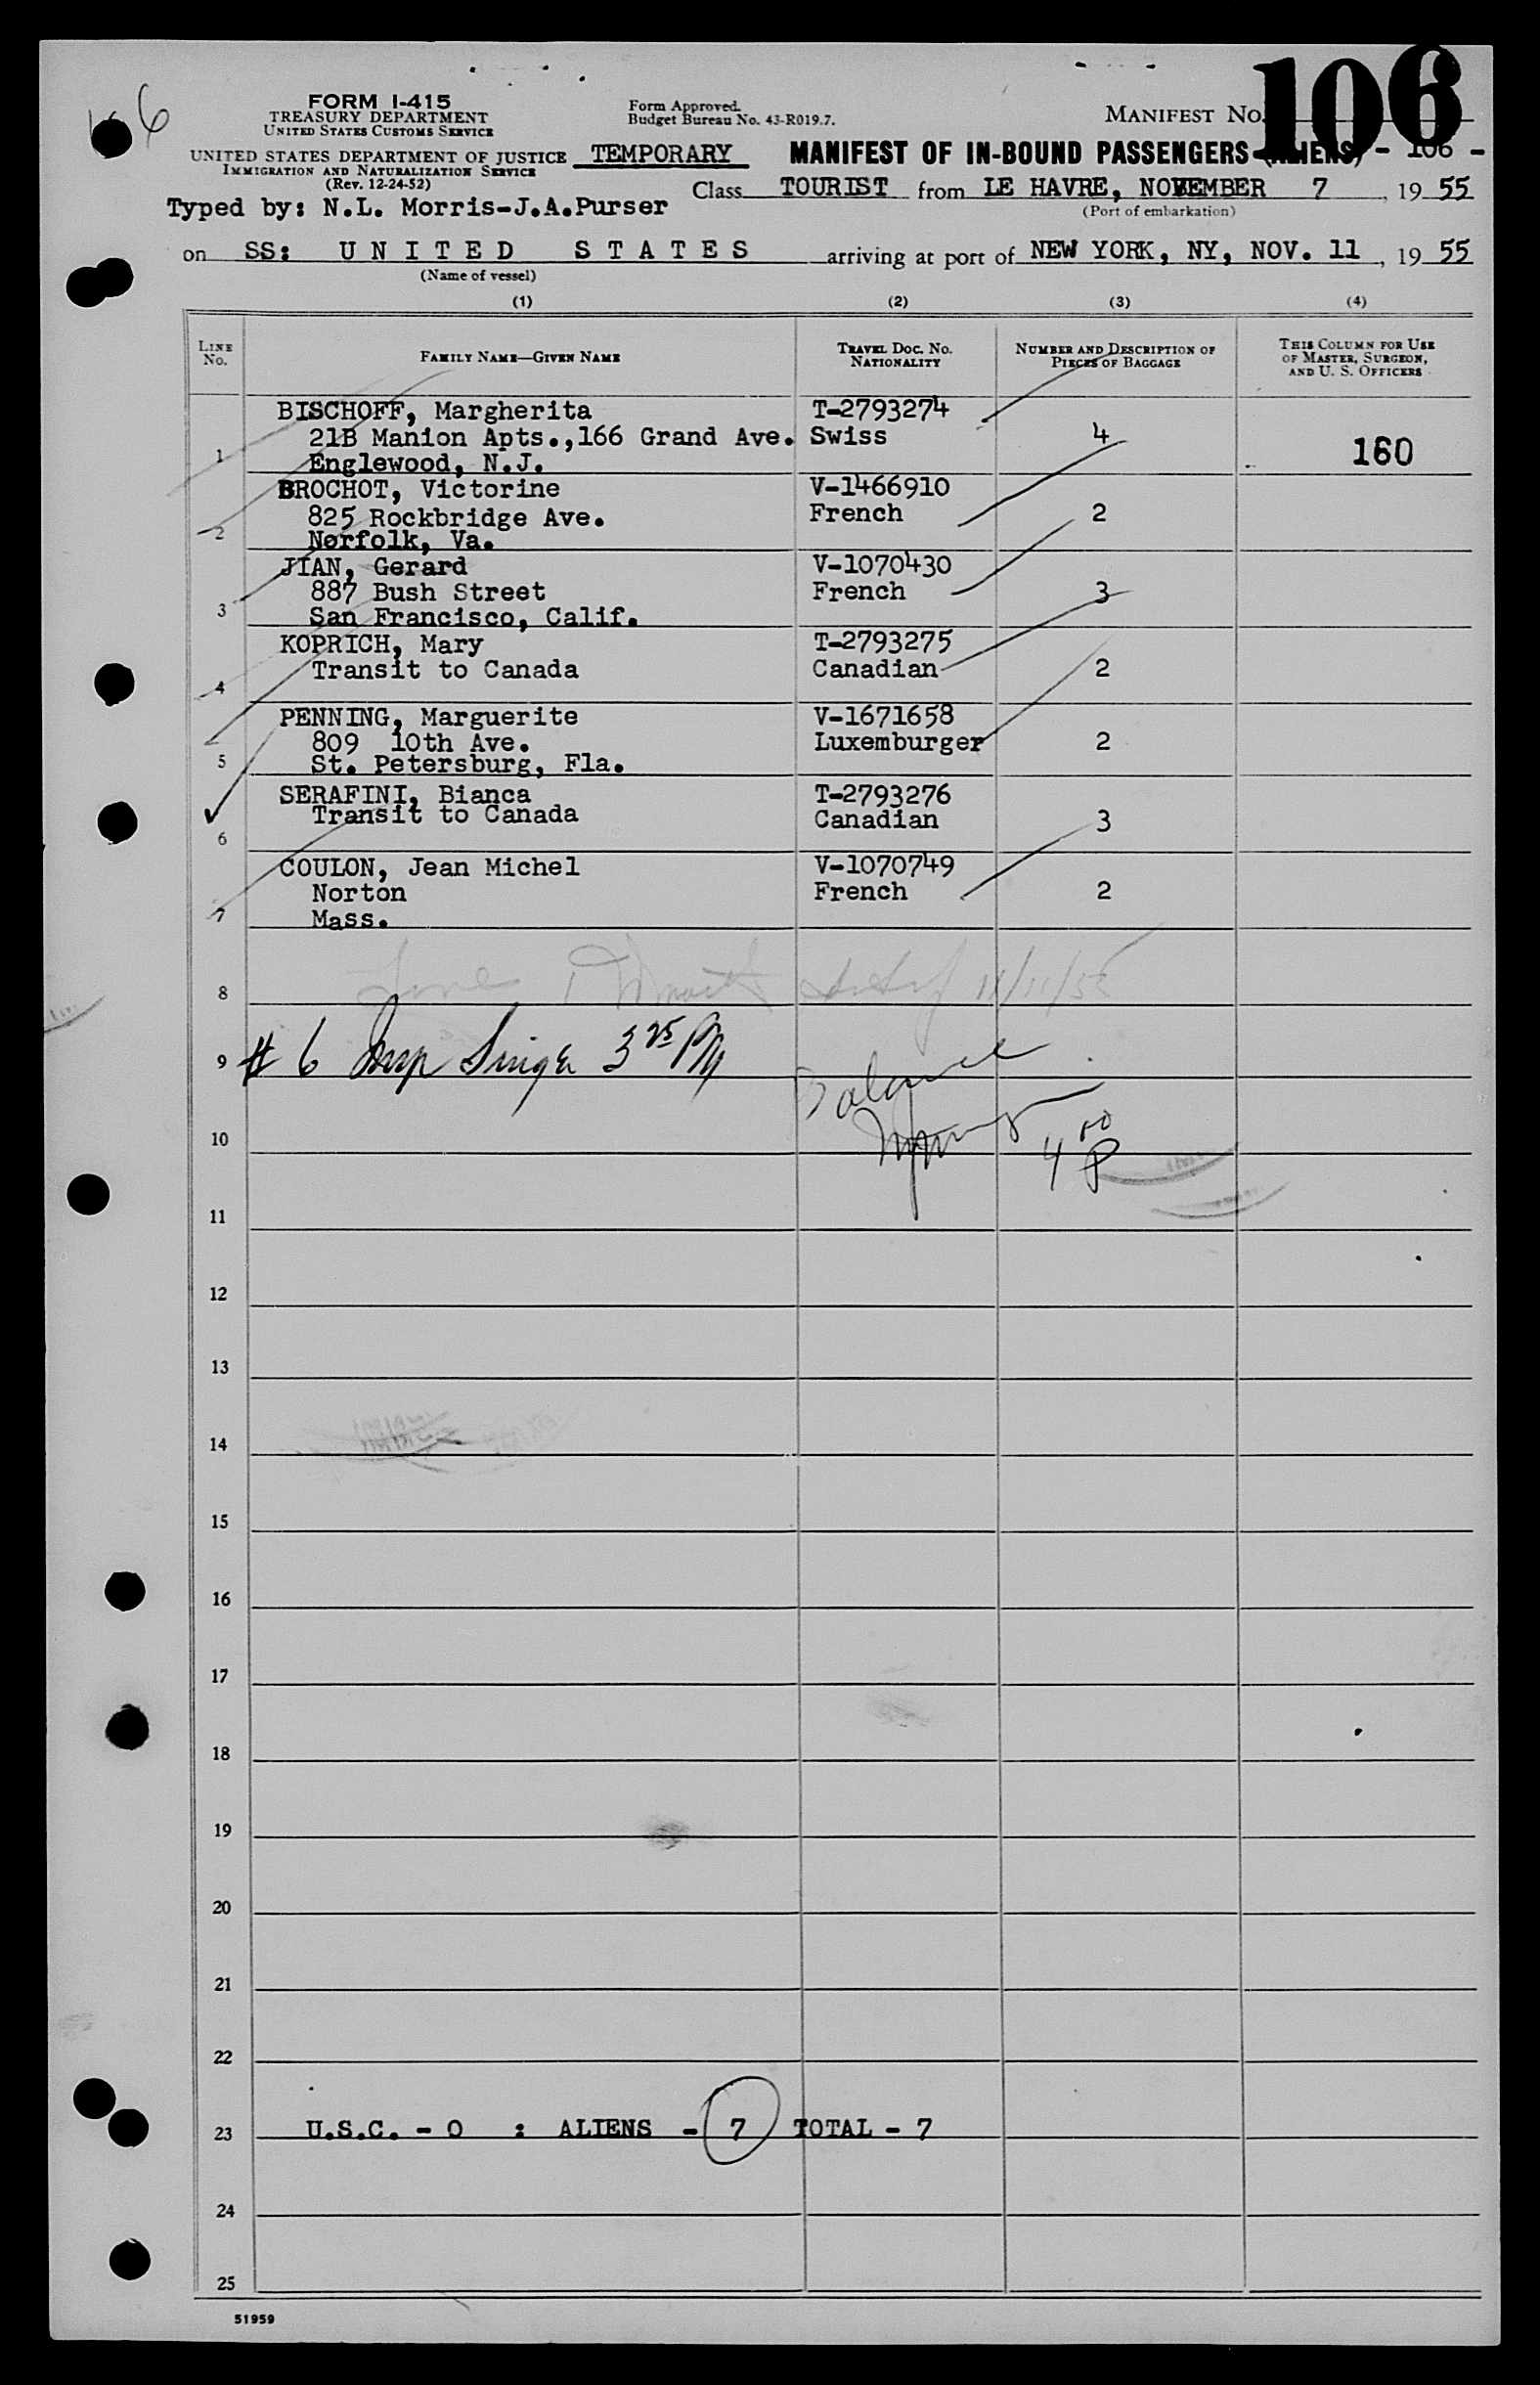 106
FORM I-415
TREASURY DEPARTMENT
UNITED STATES CUSTOMS SERVICE
Form Approved.
Budget Bureau No. 43-R019.7.
MANIFEST No.
UNITED STATES DEPARTMENT OF JUSTICE
IMMIGRATION AND NATURALIZATION SERVICE
(Rev. 12-24-52)
TEMPORARY MANIFEST OF IN-BOUND PASSENGERS (ALIENS) - 106 -
Class TOURIST from LE HAVRE, NOVEMBER 7, 1955
(Port of embarkation)
Typed by: N.L. Morris-J.A.Purser
on SS: UNITED STATES arriving at port of NEW YORK, NY, NOV. 11, 1955
(Name of vessel)
(1) (2) (3) (4)
LINE No. FAMILY NAME—GIVEN NAME TRAVEL DOC. No. NATIONALITY NUMBER AND DESCRIPTION OF PIECES OF BAGGAGE THIS COLUMN FOR USE OF MASTER, SURGEON, AND U. S. OFFICERS
BISCHOFF, Margherita T-2793274
21B Manion Apts.,166 Grand Ave. Swiss 4 160
1 Englewood, N.J.
BROCHOT, Victorine V-1466910
825 Rockbridge Ave. French 2
2 Norfolk, Va.
JIAN, Gerard V-1070430
887 Bush Street French 3
3 San Francisco, Calif.
KOPRICH, Mary T-2793275
Transit to Canada Canadian 2
4
PENNING, Marguerite V-1671658
809 10th Ave. Luxemburger 2
5 St. Petersburg, Fla.
SERAFINI, Bianca T-2793276
Transit to Canada Canadian 3
6
COULON, Jean Michel V-1070749
Norton French 2
7 Mass.
8 11/11/55
9 # 6 Insp Singer 3 25 PM
Balance
10 4 00 P
11
12
13
14
15
16
17
18
19
20
21
22
23 U.S.C. - 0 : ALIENS - 7 TOTAL - 7
24
25
51959